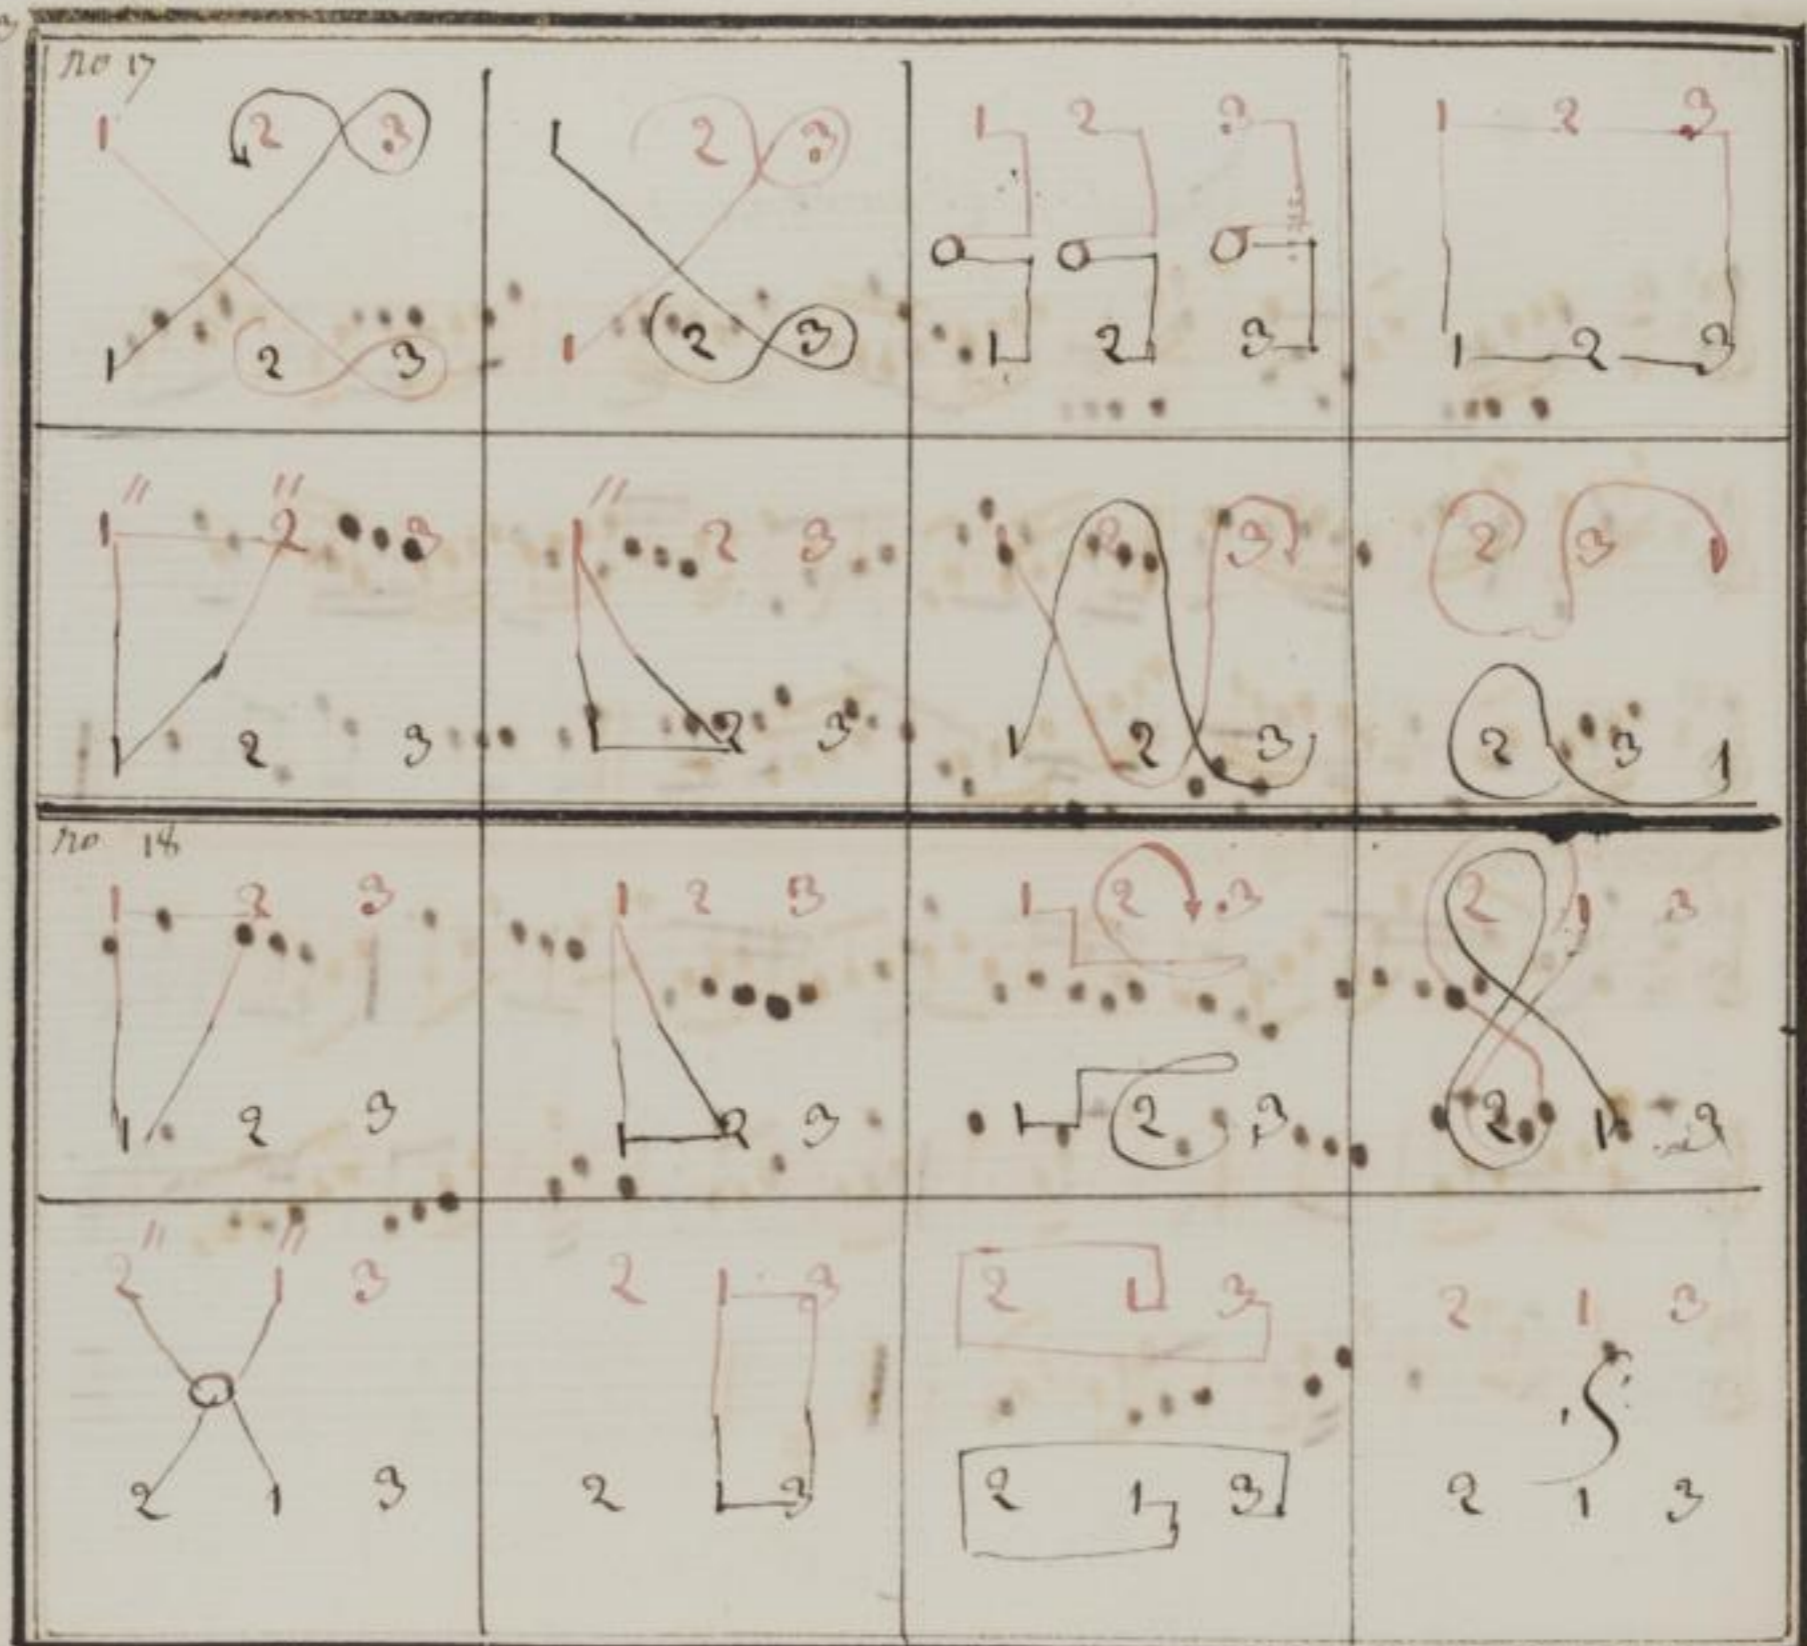 no 17
1 2 3 1 2 3 1 2 3 1 2 3
1 2 3 1 2 3 1 2 3 1 2 3
1 2 3 1 2 3 1 2 3 2 3 1
1 2 3 1 2 3 1 2 3 2 3 1
no 18
1 2 3 1 2 3 1 2 3 2 1 3
1 2 3 1 2 3 1 2 3 2 1 3
2 1 3 2 1 3 2 1 3 2 1 3
2 1 3 2 1 3 2 1 3 2 1 3